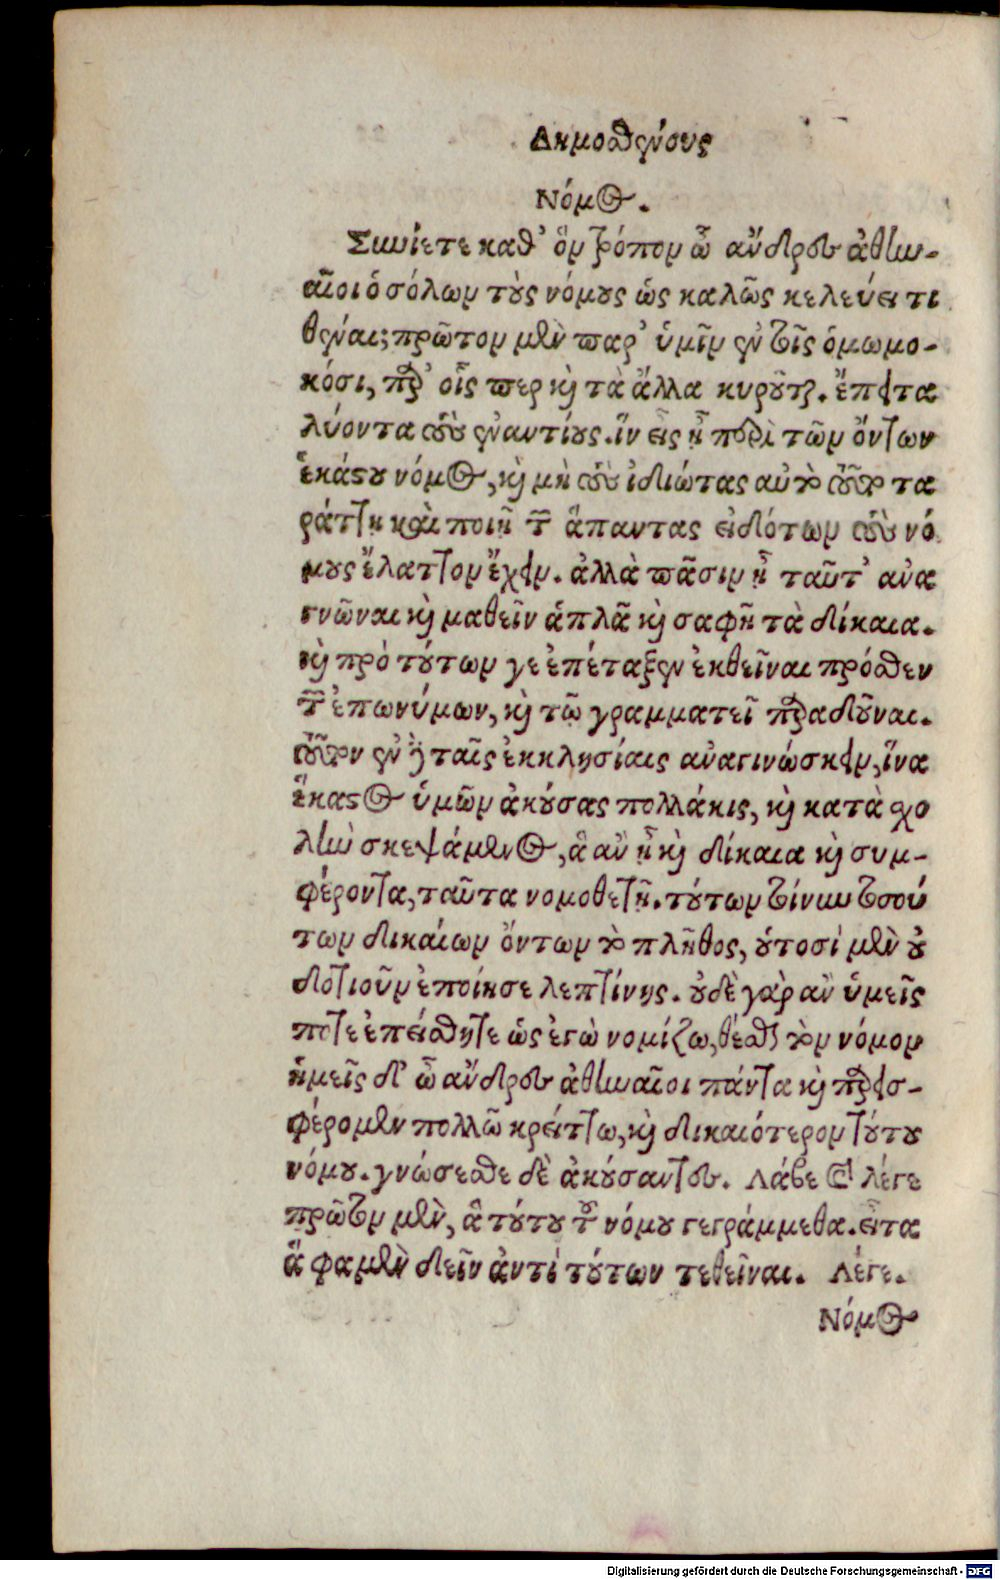 Δημοσθένους
Νόμος.
Συνίετε καθ' ὃν τρόπον ὦ ἄνδρες ἀθην-
αῖοι ὁ σόλων τοὺς νόμους ὡς καλῶς κελεύει τι
θέναι; πρῶτον μὲν παρ' ὑμῖν ἐν τοῖς ὀμωμο-
κόσι, παρ' οἷς περ καὶ τὰ ἄλλα κυροῦται. ἔπειτα
λύοντα τοὺς ἐναντίους. ἵν εἷς ᾖ περὶ τῶν ὄντων
ἑκάστου νόμος, καὶ μὴ τοὺς ἰδιώτας αὐτὸ τοῦτο τα
ράττῃ καὶ ποιῇ τῶν ἅπαντας εἰδότων τοὺς νό
μους ἔλαττον ἔχειν. ἀλλὰ πᾶσιν ᾖ ταῦτ' ἀνα
γνῶναι καὶ μαθεῖν ἁπλᾶ καὶ σαφῆ τὰ δίκαια.
καὶ πρὸ τούτων γε ἐπέταξεν ἐκθεῖναι πρόσθεν
τῶν ἐπωνύμων, καὶ τῷ γραμματεῖ παραδοῦναι.
τοῦτον ἐν δὲ ταῖς ἐκκλησίαις ἀναγινώσκειν, ἵνα
ἕκαστος ὑμῶν ἀκούσας πολλάκις, καὶ κατὰ σχο
λὴν σκεψάμενος, ἃ ἂν ᾖ καὶ δίκαια καὶ συμ-
φέροντα, ταῦτα νομοθετῇ. τούτων τοίνυν τοσού
των δικαίων ὄντων τὸ πλῆθος, οὑτοσὶ μὲν οὐ
δοτιοῦν ἐποίησε λεπτίνης. οὐδὲ γὰρ ἂν ὑμεῖς
ποτε ἐπείσθητε ὡς ἐγὼ νομίζω, θέσθαι τὸν νόμον
ἡμεῖς δ' ὦ ἄνδρες ἀθηναῖοι πάντα καὶ παρεισ-
φέρομεν πολλῷ κρείττω, καὶ δικαιότερον τούτου
νόμου. γνώσεσθε δὲ ἀκούσαντες. Λάβε καὶ λέγε
πρῶτον μὲν, ἃ τούτου τοῦ νόμου γεγράμμεθα. εἶτα
ἅ φαμεν δεῖν ἀντὶ τούτων τεθεῖναι. Λέγε.
Νόμος
Digitalisierung gefördert durch die Deutsche Forschungsgemeinschaft - DFG